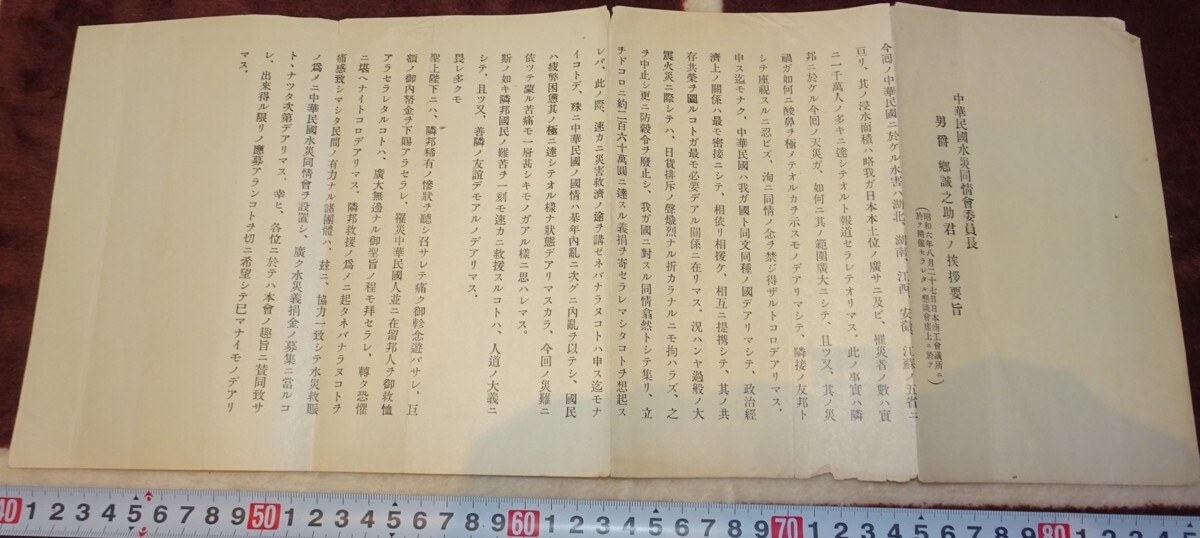 中華民國水災同情會委員長
男爵 鄕誠之助君ノ挨拶要旨
(昭和六年八月二十七日日本商工會議所ニ
於テ開催セラレタル懇談會席上ニ於テ)
今回ノ中華民國ニ於ケル水害ハ湖北、湖南、江西、安徽、江蘇ノ五省ニ
亘リ、其ノ浸水面積ハ略我ガ日本本土位ノ廣サニ及ビ、罹災者ノ數ハ實
ニ一千萬人ノ多キニ達シテオルト報道セラレテオリマス。此ノ事實ハ隣
邦ニ於ケル今回ノ天災ガ、如何ニ其ノ範圍廣大ニシテ、且ツ又、其ノ災
禍ガ如何ニ酸鼻ヲ極メテオルカヲ示スモノデアリマシテ、隣接ノ友邦ト
シテ座視スルニ忍ビズ、洵ニ同情ノ念ヲ禁ジ得ザルトコロデアリマス。
申ス迄モナク、中華民國ハ我ガ國ト同文同種ノ國デアリマシテ、政治經
濟上ノ關係ハ最モ密接ニシテ、相依リ相援ケ、相互ニ提携シテ、其ノ共
存共榮ヲ圖ルコトガ最モ必要デアル關係ニ在リマス。況ハンヤ過般ノ大
震火災ニ際シテハ、日貨排斥ノ聲熾烈ナル折カラナルニモ拘ハラズ、之
ヲ中止シ更ニ防穀令ヲ廢止シ、我ガ國ニ對スル同情翕然トシテ集リ、立
チドコロニ約二百六十萬圓ニ達スル義捐ヲ寄セラレマシタコトヲ想起ス
レバ、此ノ際、速カニ災害救濟ノ途ヲ講ゼネバナラヌコトハ申ス迄モナ
イコトデ、殊ニ中華民國ノ國情ハ朞年內亂ニ次グニ內亂ヲ以テシ、國民
ハ疲弊困憊其ノ極ニ達シテオル樣ナ狀態デアリマスカラ、今回ノ災難ニ
依ツテ蒙ル苦痛モ一層甚シキモノガアル樣ニ思ハレマス。
斯ノ如キ隣邦國民ノ難苦ヲ一刻モ速カニ救援スルコトハ、人道ノ大義ニ
シテ、且ツ又、善隣ノ友誼デモアルノデアリマス。
畏レ多クモ
聖上陛下ニハ、隣邦稀有ノ慘狀ヲ聽シ召サレテ痛ク御軫念遊バサレ、巨
額ノ御內帑金ヲ下賜アラセラレ、罹災中華民國人並ニ在留邦人ヲ御救恤
アラセラレタルコトハ、廣大無邊ナル御聖旨ノ程モ拜セラレ、轉タ恐懼
ニ堪ヘナイトコロデアリマス。隣邦救援ノ爲メニ起タネバナラヌコトヲ
痛感致シマシタ民間ノ有力ナル諸團體ハ、玆ニ、協力一致シテ水災救賑
ノ爲メニ中華民國水災同情會ヲ設置シ、廣ク水災義捐金ノ募集ニ當ルコ
ト、ナツタ次第デアリマス。幸ヒ、各位ニ於テハ本會ノ趣旨ニ賛同致サ
レ、出來得ル限リノ應募アランコトヲ切ニ希望シテ已マナイモノデアリ
マス。
40 1 2 3 4 5 6 7 8 9 50 1 2 3 4 5 6 7 8 9 60 1 2 3 4 5 6 7 8 9 70 1 2 3 4 5 6 7 8 9 80 1 2 3 4 5